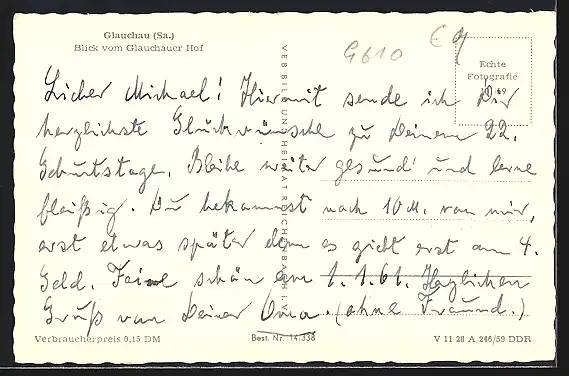 Glauchau (Sa.)
Blick vom Glauchauer Hof
G610
€9
Echte
Fotografie
10 69
Lieber Michael! Hiermit sende ich Dir
herzlichste Glückwünsche zu Deinem 22.
Geburtstage. Bleibe weiter gesund und lerne
fleißig. Du bekommst noch 10 M. von mir,
erst etwas später denn es giebt erst am 4.
Geld. Feire schön am 1.1.61. Herzlichen
Gruß von Deiner Oma. (ohne Freund.)
VEB BILD UND HEIMAT REICHENBACH I. V.
Verbraucherpreis 0,15 DM
Best. Nr. 14.338
V 11 28 A 246/59 DDR